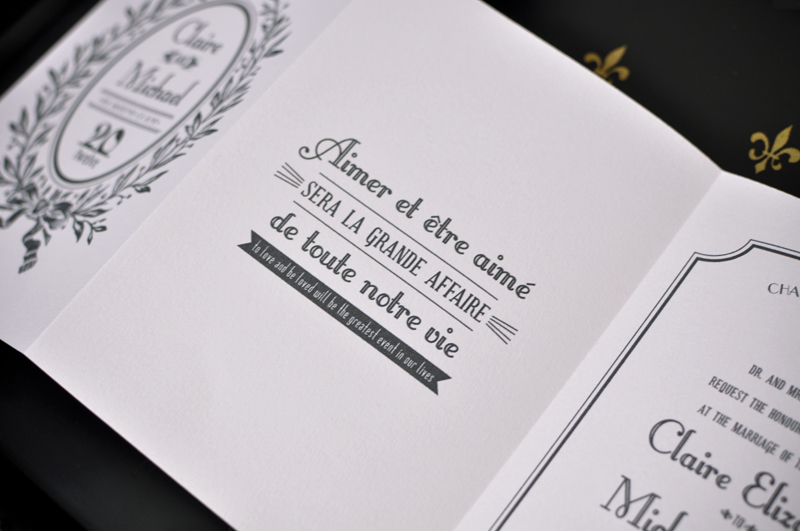 Claire
Michael
20
twelve
Aimer et être aimé
SERA LA GRANDE AFFAIRE
de toute notre vie
to love and be loved will be the greatest event in our lives
CHA
DR. AND MR
REQUEST THE HONOU
AT THE MARRIAGE OF T
Claire Eliz
Mich